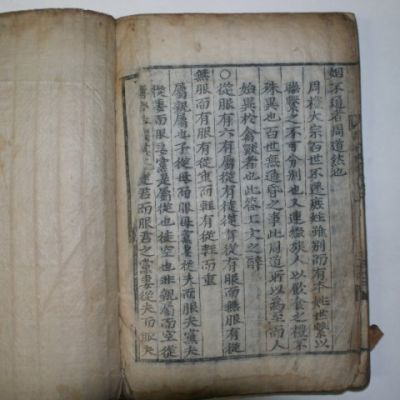 姻不通者周道然也
周禮大宗百世不遷庶姓雖別而有本姓世繫以
聯繫之不可分別也又連綴族人以飲食之禮不
殊異也百世無通昏之事此周道所以為至而人
始異於禽獸者也此答上文之辭
○從服有六有屬從有徒從有從有服而無服有從
無服而有服有從重而輕有從輕而重
屬親屬也子從母而服母黨妻從夫而服夫黨夫
從妻而服妻黨是屬從也徒空也非親屬而空從
從君而服君之黨妻從夫而服夫